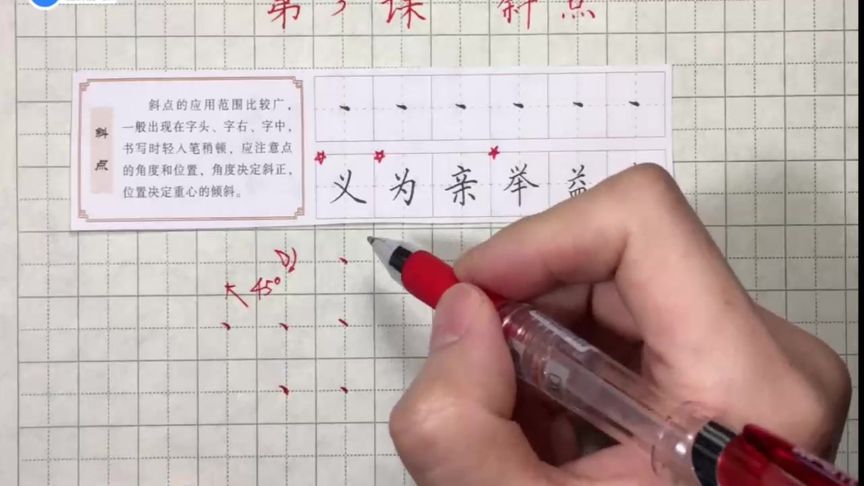 第3课 斜点
斜点
斜点的应用范围比较广，
一般出现在字头、字右、字中，
书写时轻入笔稍顿，应注意点
的角度和位置，角度决定斜正，
位置决定重心的倾斜。
义为亲举益
45°